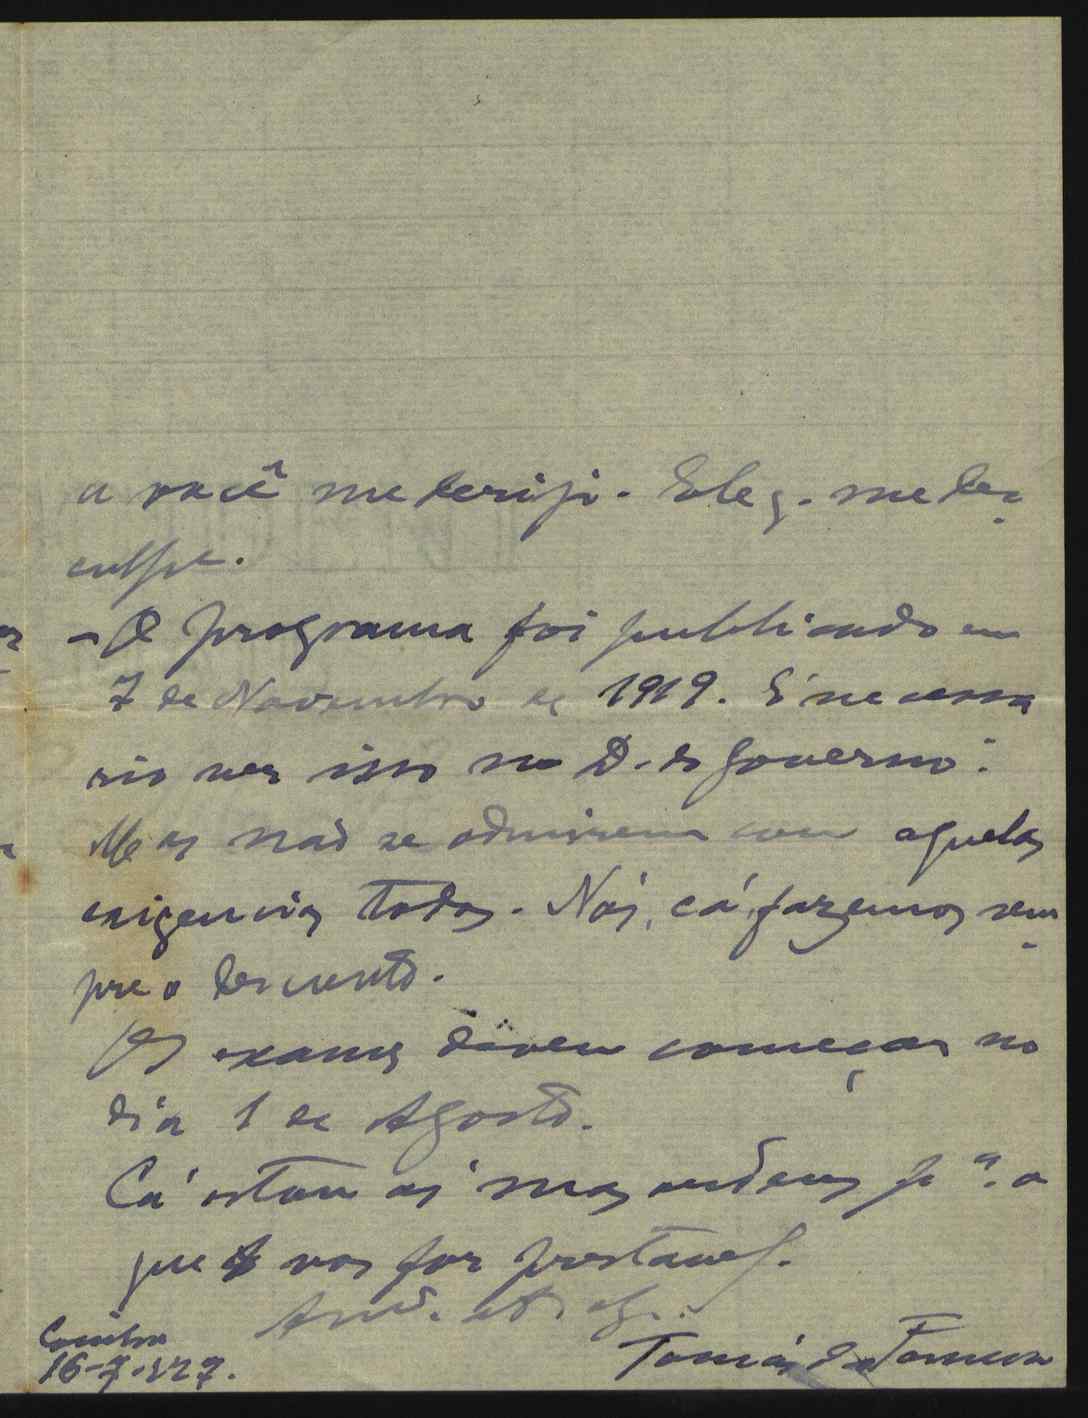 a você me dirijo. Releg. me des
culpe.
- O programa foi publicado em
7 de Novembro de 1919. É necessa
rio ver isso no D. do Governo.
Mas não se admirem com aquelas
exigencias todas. Nós, cá, fazemos sem
pre o desconto.
Os exames devem começar no
dia 1 de Agosto.
Cá estou ás suas ordens p.ª o
que vos for prestavel.
Am.º
Tomás da Fonseca
Coimbra
16-7-927.